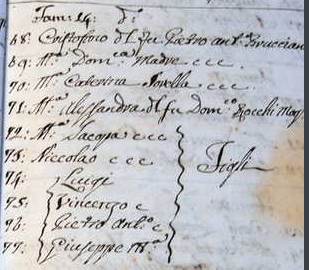 Fam: 14: di
68: Cristofano dl fu Pietro Ant.º Bruccian
69: M.ª Dom.ca Madre c c c.
70: M.ª Caterina Sorella c c c.
71: M.ª Alessandra dl fu Dom.co Rocchi Mog.
72: M.ª Jacopa c c c
73: Niccolao c c c. Figli
74: Luigi
75: Vincenzo c
76: Pietro Ant.º c
77: Giuseppe M.ª